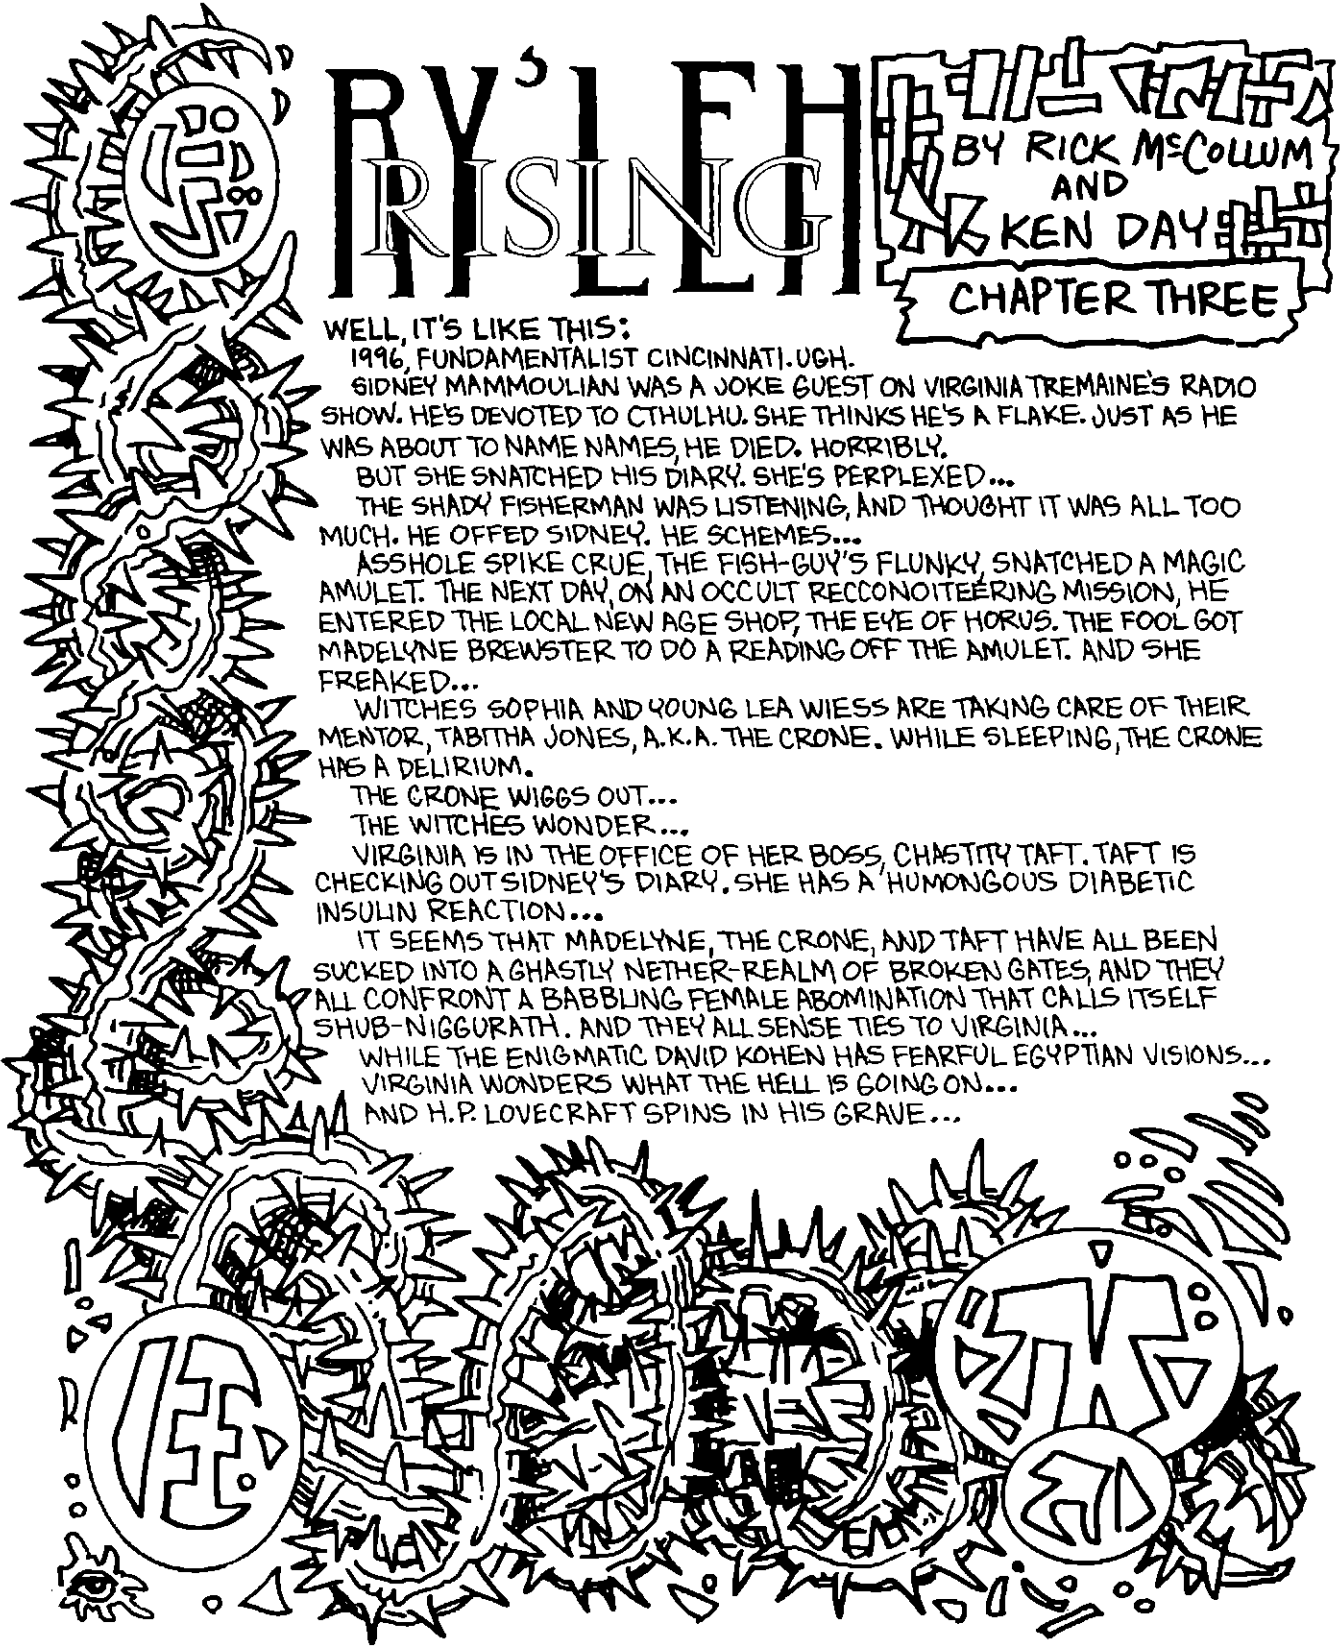 RY'LEH
RISING
BY RICK McCOLLUM
AND
KEN DAY
CHAPTER THREE
WELL, IT'S LIKE THIS:
1996, FUNDAMENTALIST CINCINNATI. UGH.
SIDNEY MAMMOULIAN WAS A JOKE GUEST ON VIRGINIA TREMAINE'S RADIO
SHOW. HE'S DEVOTED TO CTHULHU. SHE THINKS HE'S A FLAKE. JUST AS HE
WAS ABOUT TO NAME NAMES, HE DIED. HORRIBLY.
BUT SHE SNATCHED HIS DIARY. SHE'S PERPLEXED...
THE SHADY FISHERMAN WAS LISTENING, AND THOUGHT IT WAS ALL TOO
MUCH. HE OFFED SIDNEY. HE SCHEMES...
ASSHOLE SPIKE CRUE, THE FISH-GUY'S FLUNKY, SNATCHED A MAGIC
AMULET. THE NEXT DAY, ON AN OCCULT RECCONOITEERING MISSION, HE
ENTERED THE LOCAL NEW AGE SHOP, THE EYE OF HORUS. THE FOOL GOT
MADELYNE BREWSTER TO DO A READING OFF THE AMULET. AND SHE
FREAKED...
WITCHES SOPHIA AND YOUNG LEA WIESS ARE TAKING CARE OF THEIR
MENTOR, TABITHA JONES, A.K.A. THE CRONE. WHILE SLEEPING, THE CRONE
HAS A DELIRIUM.
THE CRONE WIGGS OUT...
THE WITCHES WONDER...
VIRGINIA IS IN THE OFFICE OF HER BOSS, CHASTITY TAFT. TAFT IS
CHECKING OUT SIDNEY'S DIARY. SHE HAS A HUMONGOUS DIABETIC
INSULIN REACTION...
IT SEEMS THAT MADELYNE, THE CRONE, AND TAFT HAVE ALL BEEN
SUCKED INTO A GHASTLY NETHER-REALM OF BROKEN GATES, AND THEY
ALL CONFRONT A BABBLING FEMALE ABOMINATION THAT CALLS ITSELF
SHUB-NIGGURATH. AND THEY ALL SENSE TIES TO VIRGINIA...
WHILE THE ENIGMATIC DAVID KOHEN HAS FEARFUL EGYPTIAN VISIONS...
VIRGINIA WONDERS WHAT THE HELL IS GOING ON...
AND H.P. LOVECRAFT SPINS IN HIS GRAVE...